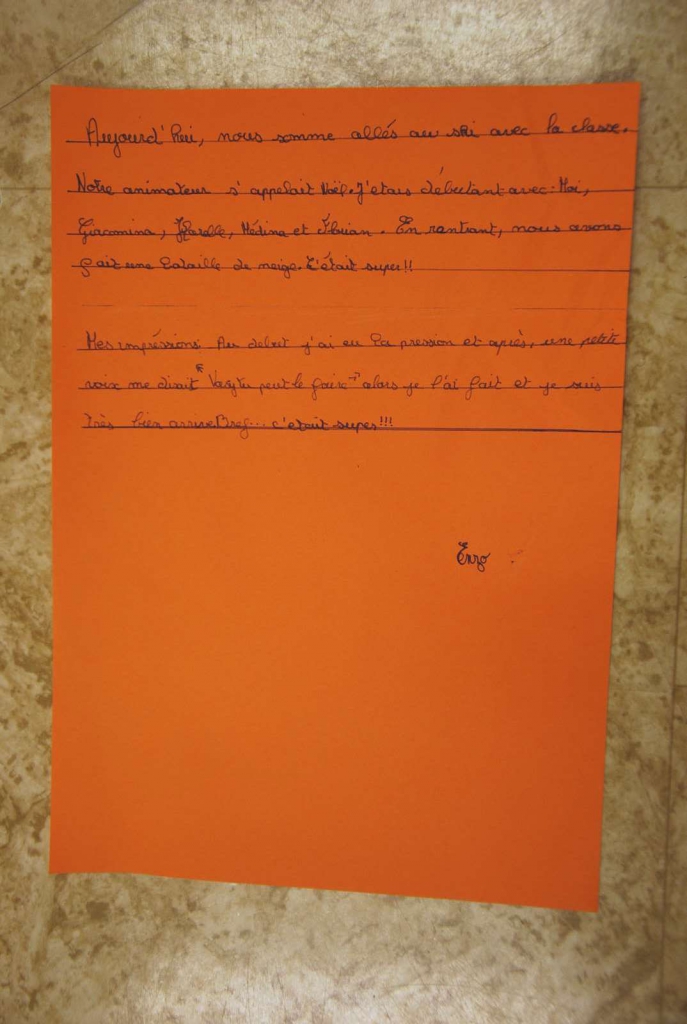 Aujourd'hui, nous somme allés au ski avec la classe.
Notre animateur s'appelait Noël. J'étais débutant avec: Moi,
Giacomina, Médina et Floriant. En rantrant, nous avons
fait une bataille de neige. C'était super!!
Mes impréssions: Au debut j'ai eu la pression et après, une petite
voix me disait " Vasy tu peut le faire " alors je l'ai fait et je suis
très bien arrivé Bref... c'etait super!!!
Enzo